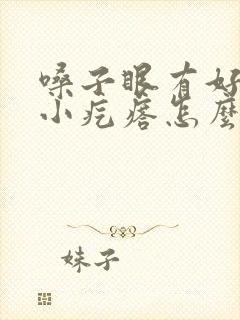 嗓子眼有好
小疙瘩怎麼
妹子